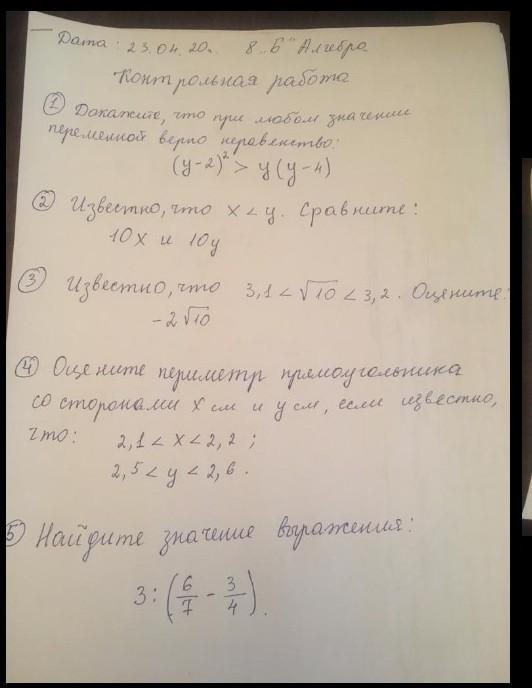 Дата: 23.04.20г. 8 „Б" Алгебра
Контрольная работа
① Докажите, что при любом значении
переменной верно неравенство:
(y-2)² > y(y-4)
② Известно, что x < y. Сравните:
10x и 10y
③ Известно, что 3,1 < √10 < 3,2. Оцените:
-2√10
④ Оцените периметр прямоугольника
со сторонами x см и y см, если известно,
что: 2,1 < x < 2,2 ;
2,5 < y < 2,6.
⑤ Найдите значение выражения:
3 : (6/7 - 3/4).